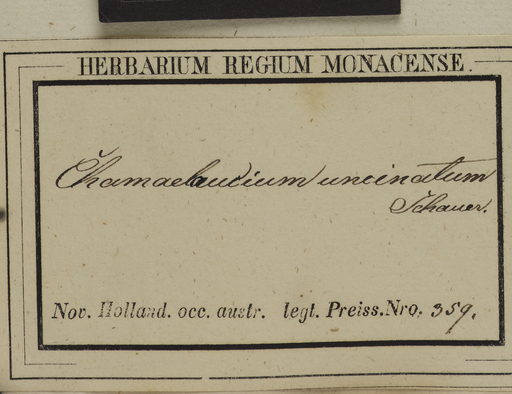 HERBARIUM REGIUM MONACENSE.
Chamaelaucium uncinatum
Schauer.
Nov. Holland. occ. austr. legt. Preiss. Nro. 359.